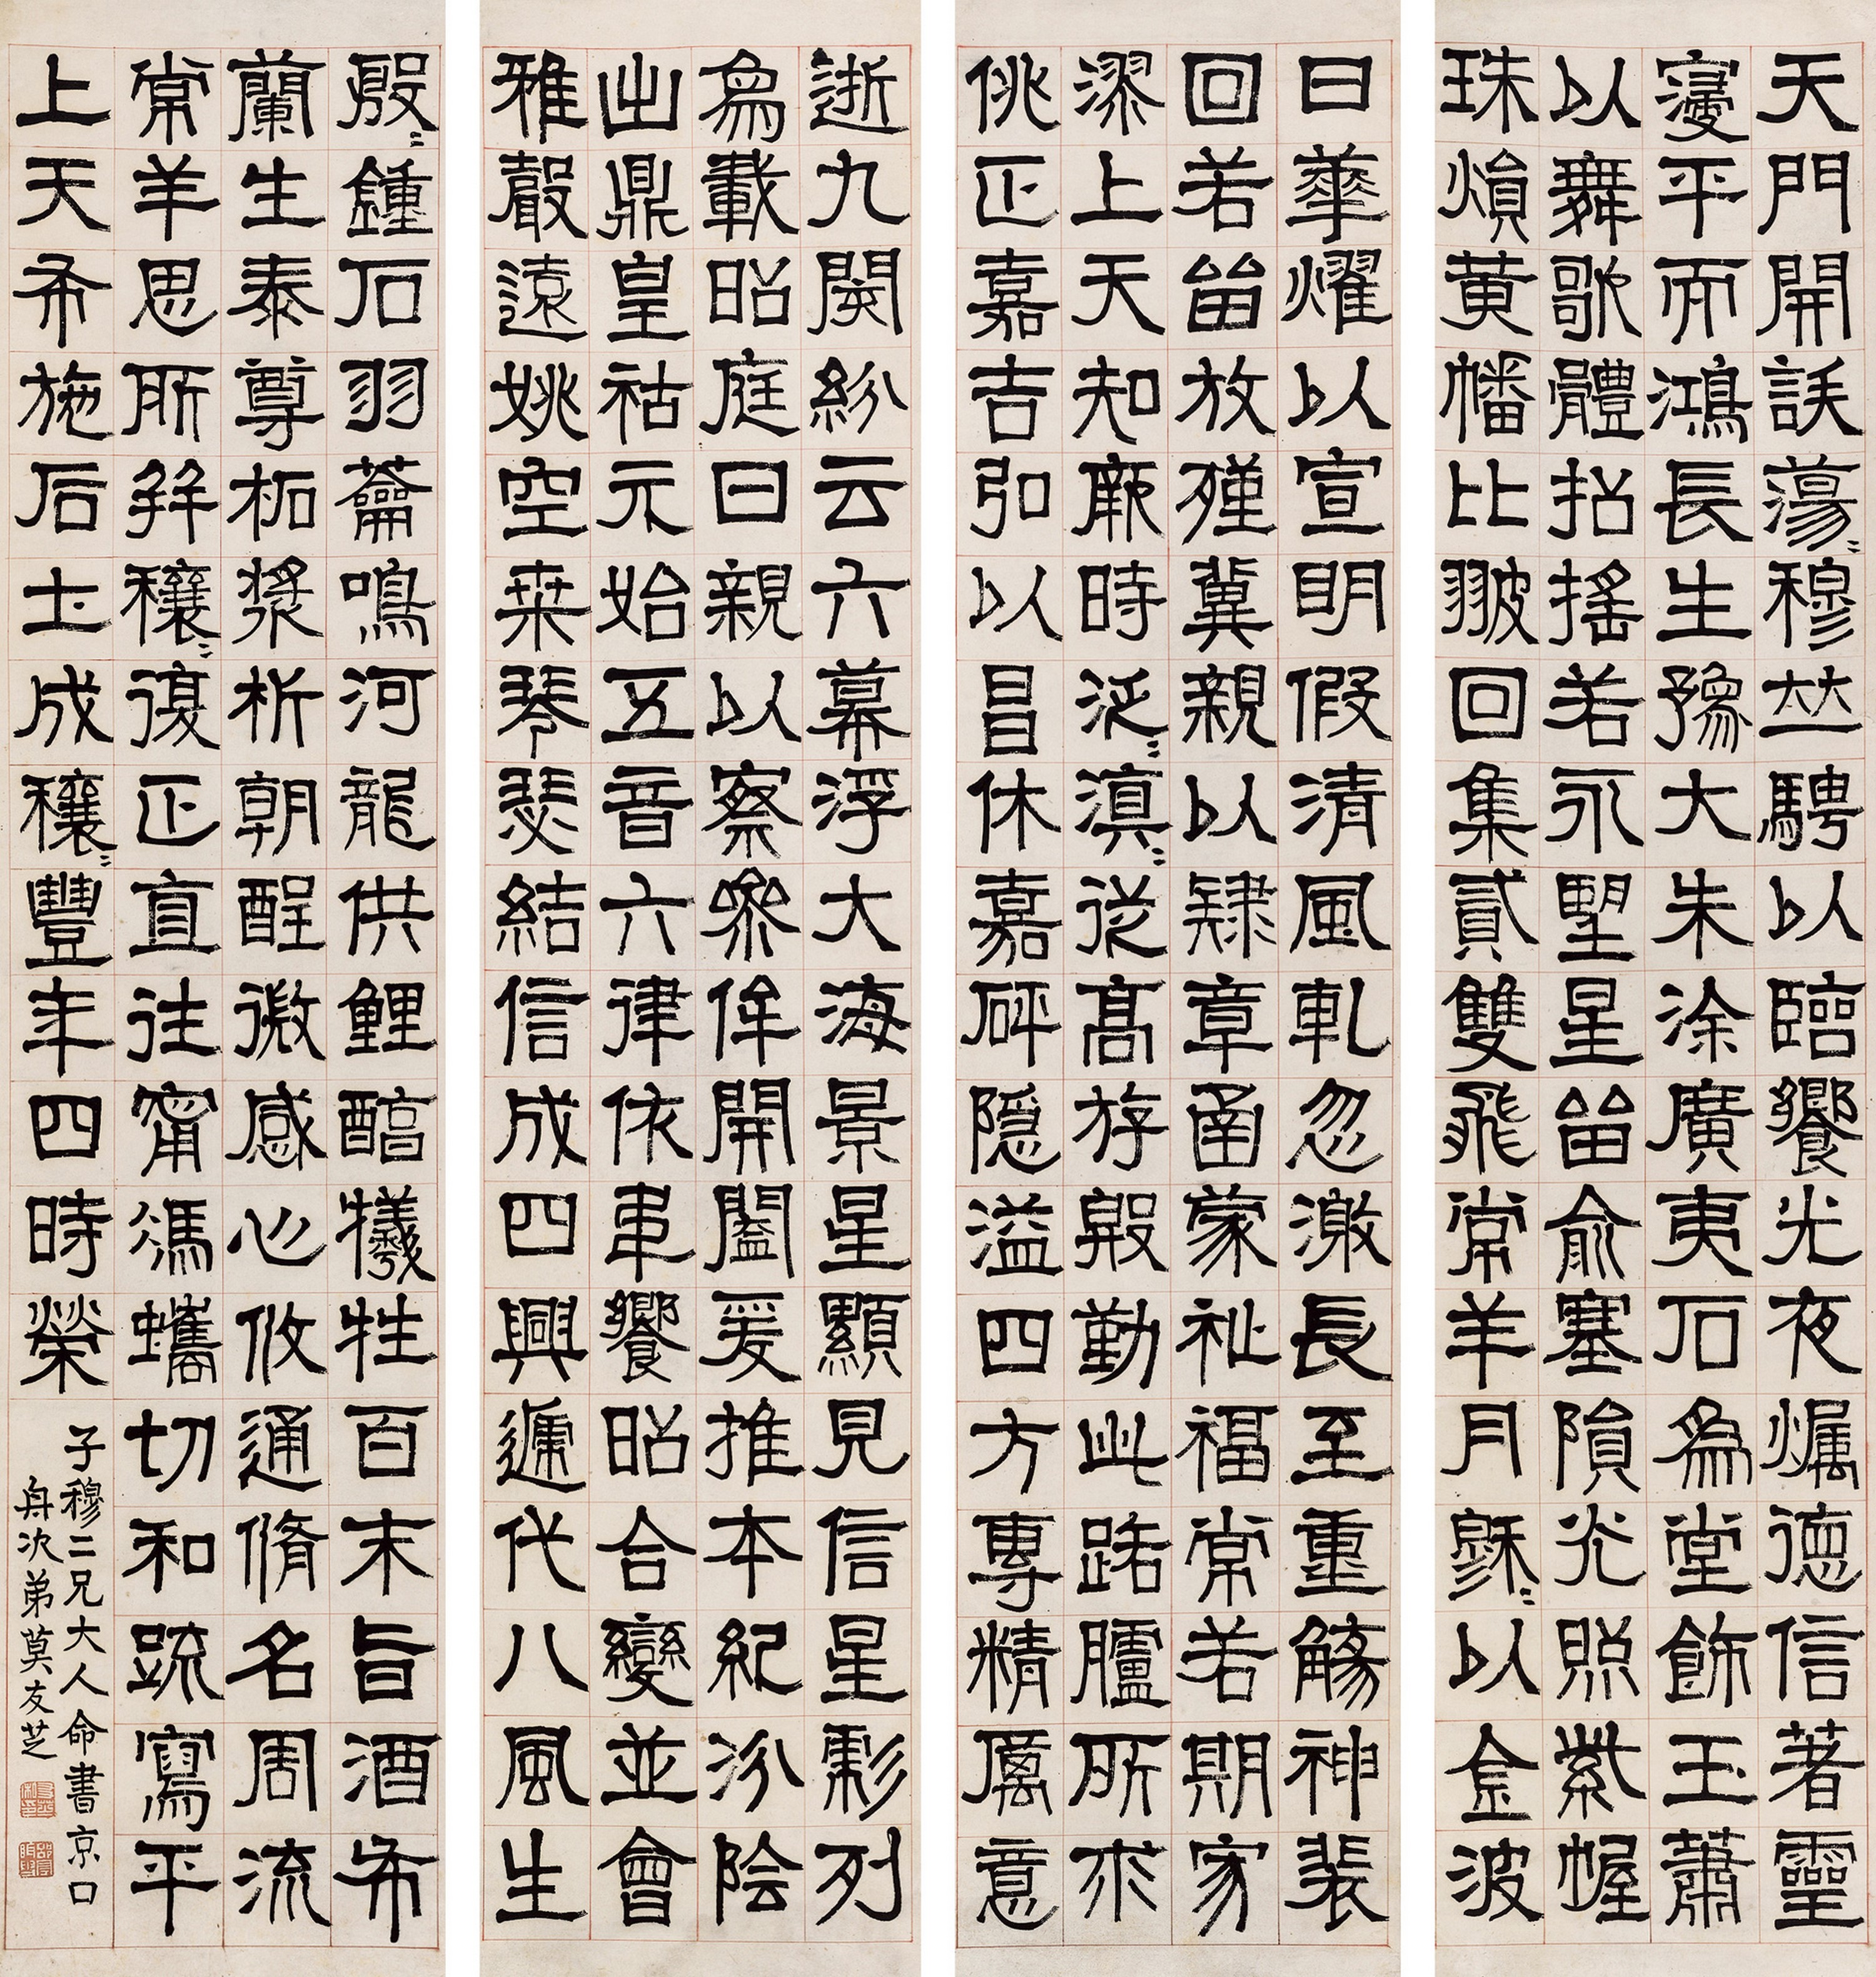 天門開詄蕩〻穆並騁以臨饗光夜爥德信著靈
寖平而鴻長生豫大朱涂廣夷石爲堂飾玉蕭
以舞歌體招搖若永望星留俞塞隕光照紫幄
珠熉黃幡比翄回集貳雙飛常羊月穆〻以金波
日華燿以宣明假清風軋忽激長至重觴神裴
回若留放殣冀親以肆章函蒙祉福常若期寂
漻上天知厥時泛〻滇〻從高斿殷勤此路臚所求
佻正嘉吉弘以昌休嘉砰隱溢四方專精厲意
逝九閡紛云六幕浮大海景星顯見信星彪列
象載昭庭日親以察參侔開闔爰推本紀汾陰
出鼎皇祜元始五音六律依韋饗昭合變並會
雅聲遠姚空桑琴瑟結信成四興遞代八風生
殷〻鍾石羽籥鳴河龍供鯉醇犧牲百末旨酒布
蘭生泰尊柘漿析朝酲微感心攸通脩名周流
常羊思所并穰〻復正直往甯馮蠵切和疏寫平
上天布施后土成穰〻豐年四時榮
子穆二兄大人命書京口
舟次弟莫友芝